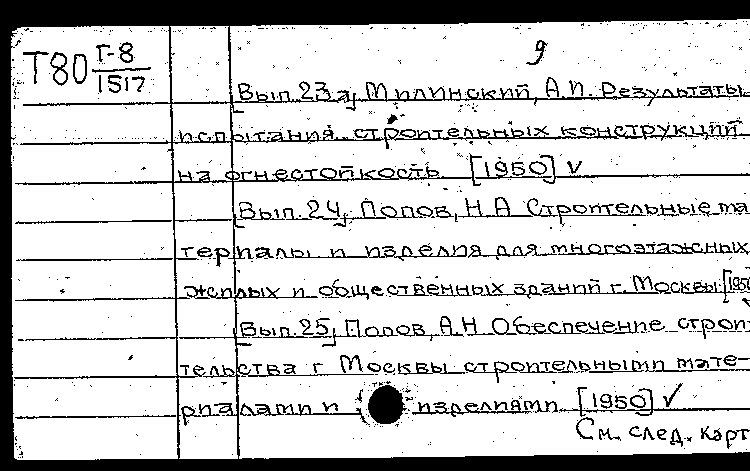 9
Т80 Г-8
1517
[Вып. 23а], Милинский, А.И. Результаты
испытания строительных конструкций
на огнестойкость [1950] ✓
[Вып. 24], Попов, Н.А Строительные ма
териалы и изделия для многоэтажных
жилых и общественных зданий г. Москвы [1950
[Вып. 25], Попов, А.Н Обеспечение строи
тельства г Москвы строительными мате-
риалами и изделиями [1950] ✓
См. след. карт